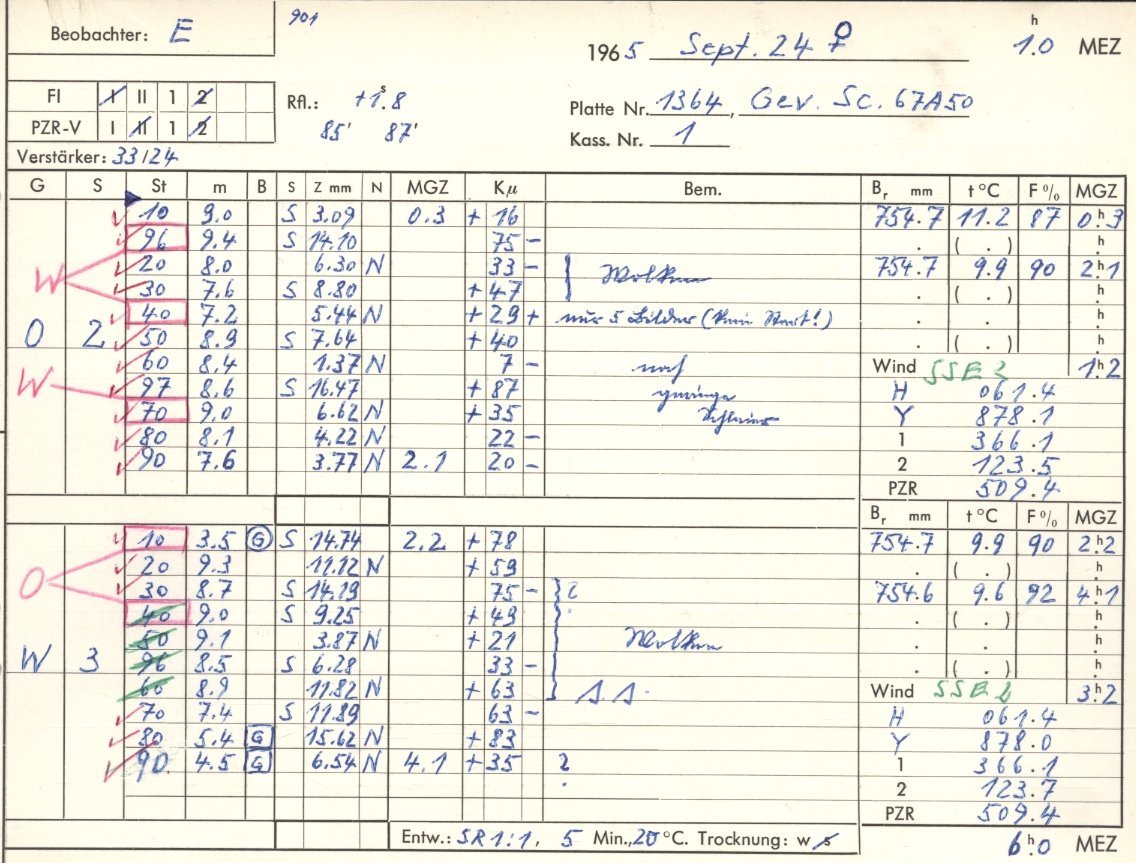 Beobachter: E
901
1965 Sept. 24 ♀
1.0 h MEZ
FI I II 1 2
PZR-V I II 1 2
Rfl.: +1.8 s
85' 87'
Platte Nr. 1364, Gev. Sc. 67A50
Kass. Nr. 1
Verstärker: 33/24
G S St m B S Z mm N MGZ Kμ Bem. Br mm t °C F % MGZ
10 9.0 S 3.09 0.3 + 16 754.7 11.2 87 0.h3
96 9.4 S 14.10 75 - . ( . ) h
20 8.0 6.30 N 33 - Wolken 754.7 9.9 90 2.h1
W 30 7.6 S 8.80 + 47 . ( . ) h
40 7.2 5.44 N + 29 + nur 5 Bilder (kein Start!) . . h
O 2 50 8.9 S 7.64 + 40 . ( . ) h
60 8.4 1.37 N 7 - noch Wind SSE 1.h2
W 97 8.6 S 16.47 + 87 geringe H 061.4
70 9.0 6.62 N + 35 Schleier Y 878.1
80 8.1 4.22 N 22 - 1 366.1
90 7.6 3.77 N 2.1 20 - 2 123.5
PZR 509.4
Br mm t °C F % MGZ
10 3.5 G S 14.74 2.2 + 78 754.7 9.9 90 2.h2
20 9.3 11.12 N + 59 . ( . ) h
O 30 8.7 S 14.19 75 - 754.6 9.6 92 4.h1
40 9.0 S 9.25 + 49 . ( . ) h
50 9.1 3.87 N + 21 Wolken . . h
W 3 96 8.5 S 6.28 33 - . ( . ) h
60 8.9 11.82 N + 63 Wind SSE 3.h2
70 7.4 S 11.89 63 - H 061.4
80 5.4 G 15.62 N + 83 Y 878.0
90 4.5 G 6.54 N 4.1 + 35 ? 1 366.1
2 123.7
PZR 509.4
Entw.: SR 1:1, 5 Min., 20 °C. Trocknung: w s
6.h0 MEZ